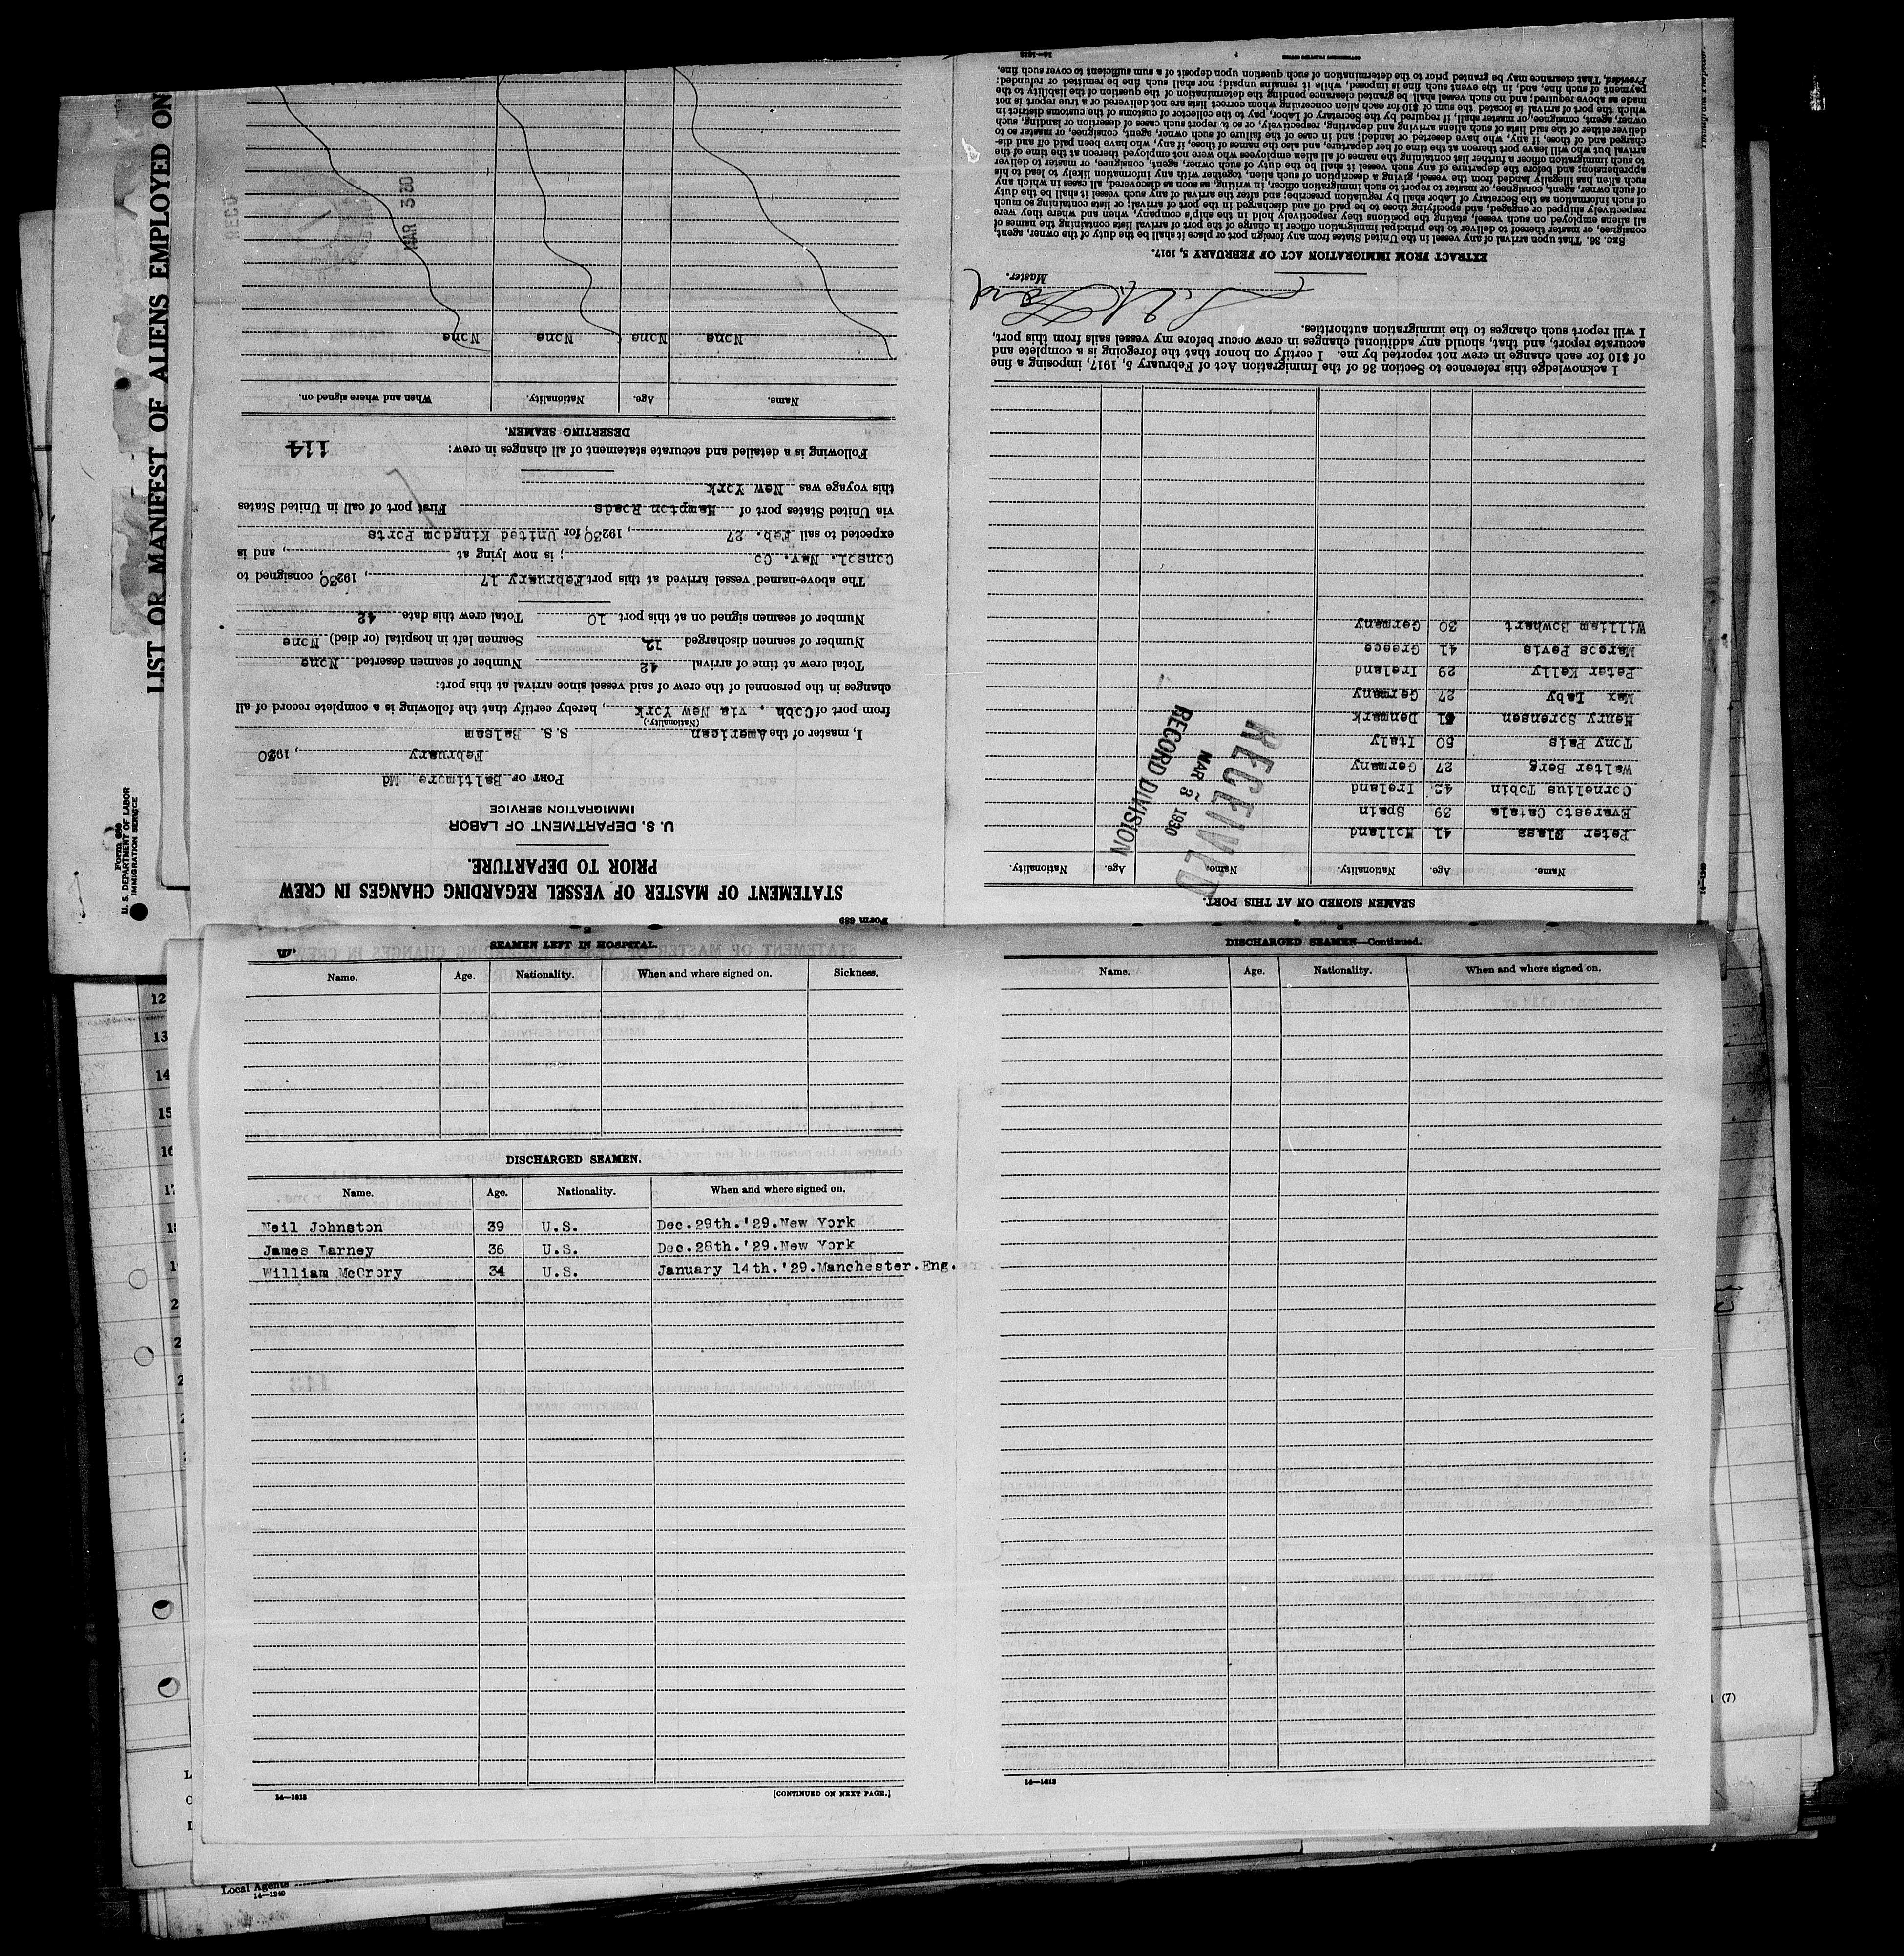 LIST OR MANIFEST OF ALIENS EMPLOYED ON
Form 689
U. S. DEPARTMENT OF LABOR
IMMIGRATION SERVICE
Form 689
STATEMENT OF MASTER OF VESSEL REGARDING CHANGES IN CREW
PRIOR TO DEPARTURE.
U. S. DEPARTMENT OF LABOR
IMMIGRATION SERVICE
PORT OF Baltimore Md
February, 1930
I, master of the American S. S. Balsam
(Nationality.)
from port of Cobh, via New York, hereby certify that the following is a complete record of all
changes in the personnel of the crew of said vessel since arrival at this port:
Total crew at time of arrival 42 Number of seamen deserted None
Number of seamen discharged 12 Seamen left in hospital (or died) None
Number of seamen signed on at this port 10 Total crew this date 42
The above-named vessel arrived at this port February 17, 1930, consigned to
Consol. Nav. Co ; is now lying at , and is
expected to sail Feb. 27, 1930, for United Kingdom Ports
via United States port of Hampton Roads First port of call in United States
this voyage was New York
Following is a detailed and accurate statement of all changes in crew: 114
DESERTING SEAMEN.
Name. Age. Nationality. When and where signed on.
None None None None
MAR 3 30
RECD
SEAMEN SIGNED ON AT THIS PORT.
Name. Age. Nationality. Name. Age. Nationality.
Peter Blass 41 Holland
Evaresto Catala 39 Spain
Cornelius Tobin 42 Ireland
Walter Berg 27 Germany
Tony Pais 50 Italy
Henry Sorensen 51 Denmark
Max Laby 27 Germany
Peter Kelly 29 Ireland
Marcos Pevis 41 Greece
William Bowhart 30 Germany
RECEIVED
MAR 3 1930
RECORD DIVISION
I acknowledge this reference to Section 36 of the Immigration Act of February 5, 1917, imposing a fine
of $10 for each change in crew not reported by me. I certify on honor that the foregoing is a complete and
accurate report, and that, should any additional changes in crew occur before my vessel sails from this port,
I will report such changes to the immigration authorities.
Master.
EXTRACT FROM IMMIGRATION ACT OF FEBRUARY 5, 1917.
SEC. 36. That upon arrival of any vessel in the United States from any foreign port or place it shall be the duty of the owner, agent,
consignee, or master thereof to deliver to the principal immigration officer in charge of the port of arrival lists containing the names of
all aliens employed on such vessel, stating the positions they respectively hold in the ship's company, when and where they were
respectively shipped or engaged, and specifying those to be paid off and discharged in the port of arrival; or lists containing so much
of such information as the Secretary of Labor shall by regulation prescribe; and after the arrival of any such vessel it shall be the duty
of such owner, agent, consignee, or master to report to such immigration officer, in writing, as soon as discovered, all cases in which any
such alien has illegally landed from the vessel, giving a description of such alien, together with any information likely to lead to his
apprehension; and before the departure of any such vessel it shall be the duty of such owner, agent, consignee, or master to deliver
to such immigration officer a further list containing the names of all alien employees who were not employed thereon at the time of the
arrival but who will leave port thereon at the time of her departure, and also the names of those, if any, who have been paid off and dis-
charged and of those, if any, who have deserted or landed; and in case of the failure of such owner, agent, consignee, or master so to
deliver either of the said lists of such aliens arriving and departing, respectively, or so to report such cases of desertion or landing, such
owner, agent, consignee, or master shall, if required by the Secretary of Labor, pay to the collector of customs of the customs district in
which the port of arrival is located the sum of $10 for each alien concerning whom correct lists are not delivered or a true report is not
made as above required; and no such vessel shall be granted clearance pending the determination of the question of the liability to the
payment of such fine, and, in the event such fine is imposed, while it remains unpaid; nor shall such fine be remitted or refunded:
Provided, That clearance may be granted prior to the determination of such question upon deposit of a sum sufficient to cover such fine.
SEAMEN LEFT IN HOSPITAL.
Name. Age. Nationality. When and where signed on. Sickness.
DISCHARGED SEAMEN.
Name. Age. Nationality. When and where signed on.
Neil Johnston 39 U.S. Dec.29th.'29.New York
James Larney 36 U.S. Dec.28th.'29.New York
William McCrory 34 U.S. January 14th.'29.Manchester.Eng.
14—1613 [CONTINUED ON NEXT PAGE.]
DISCHARGED SEAMEN—Continued.
Name. Age. Nationality. When and where signed on.
14—1613
12
13
14
15
16
(7)
Local Agents
14—1240